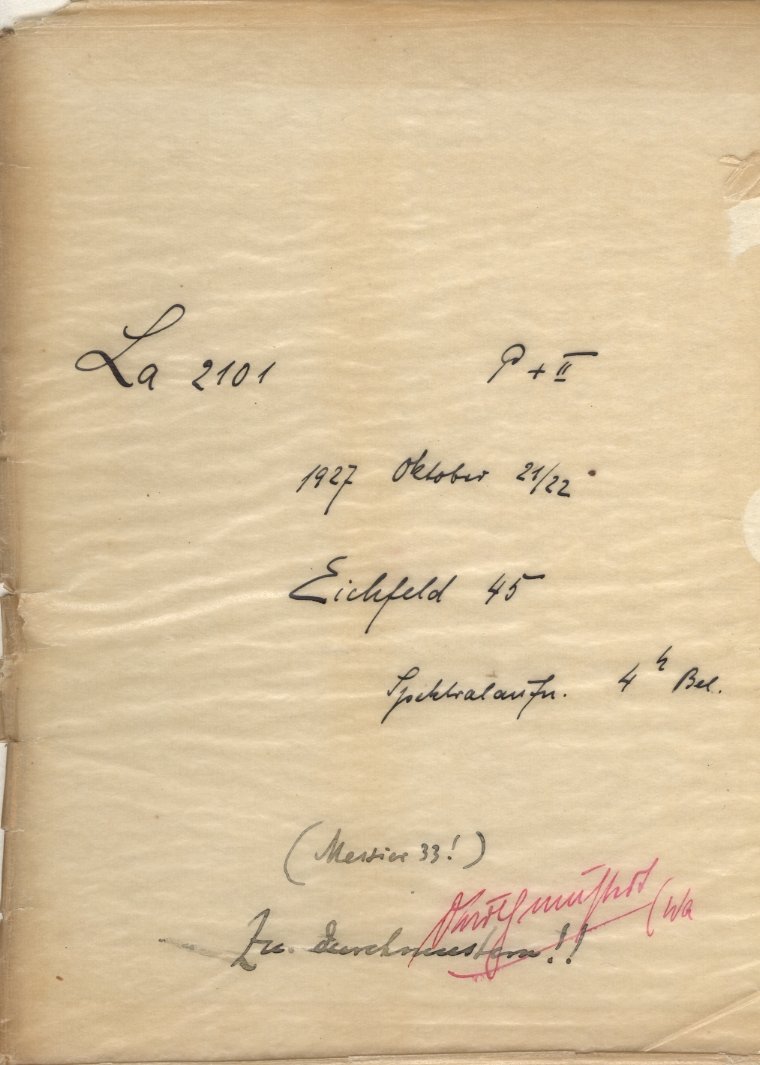 La 2101 P + II
1927 Oktober 21/22
Eichfeld 45
Spektralaufn. 4h Bel.
(Messier 33!)
durchmustert (Wa
Zu durchmustern!!